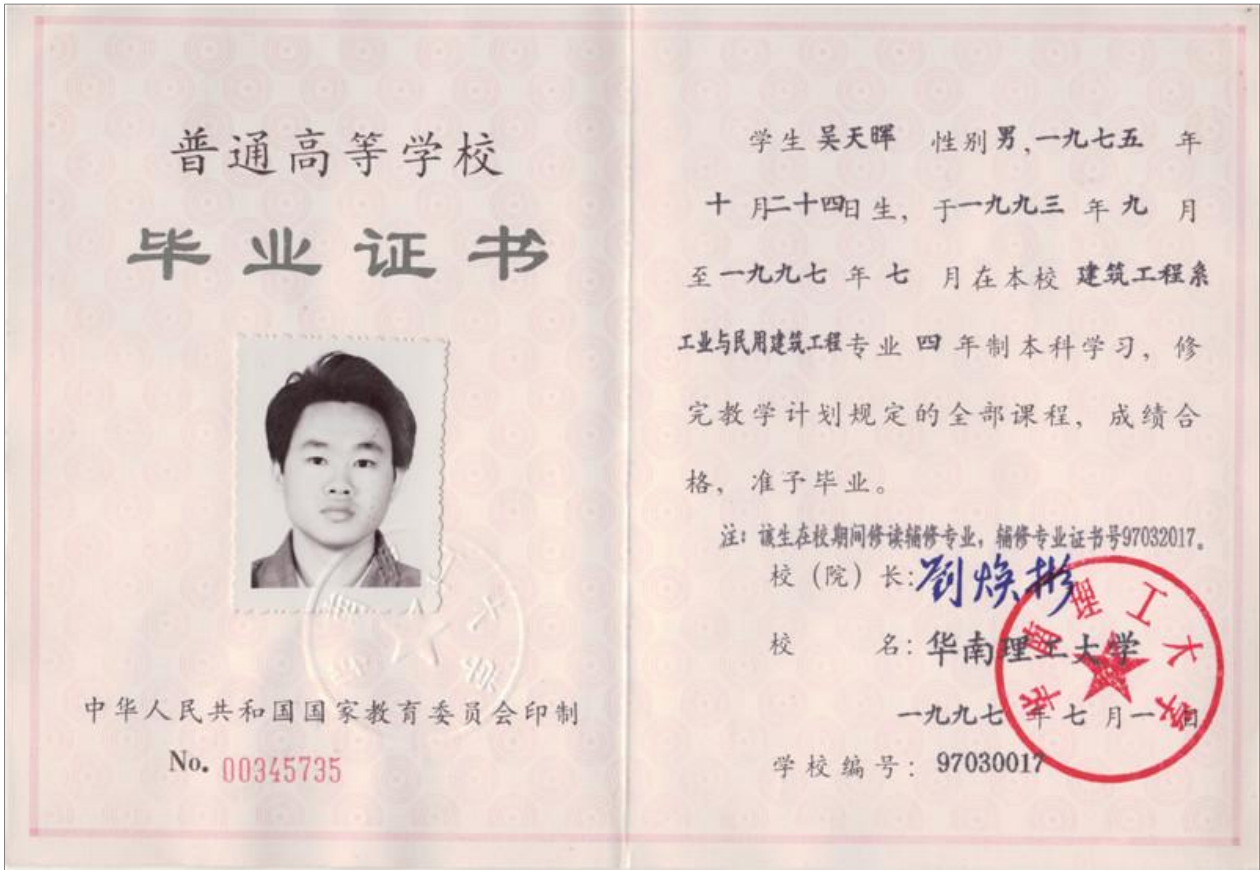 普通高等学校
毕业证书
中华人民共和国国家教育委员会印制
No. 00345735
学生 吴天晖 性别 男，一九七五 年
十 月二十四日生，于一九九三 年 九 月
至一九九七 年 七 月在本校 建筑工程系
工业与民用建筑工程专业 四 年制本科学习，修
完教学计划规定的全部课程，成绩合
格，准予毕业。
注：该生在校期间修读辅修专业，辅修专业证书号97032017。
校（院）长：劉焕彬
校 名：华南理工大学
一九九七 年 七 月 一 日
学校编号：97030017
华南理工大学